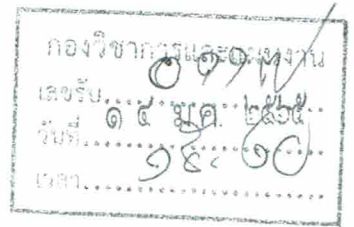 กองวิชาการและแผนงาน
เลขรับ
วันที่ ๑๔ ม.ค. ๒๕๖๕
เวลา ๑๕.๑๐